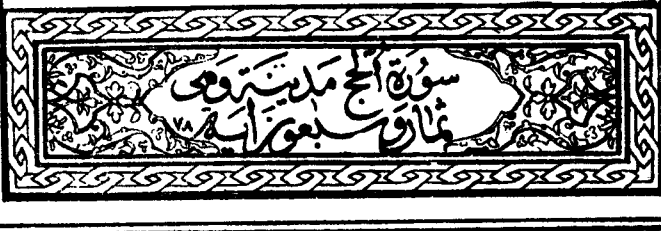 سُورَةُ الْحَجِّ مَدَنِيَّةٌ وَهِيَ
ثَمَانٍ وَسَبْعُونَ آيَةً ٧٨